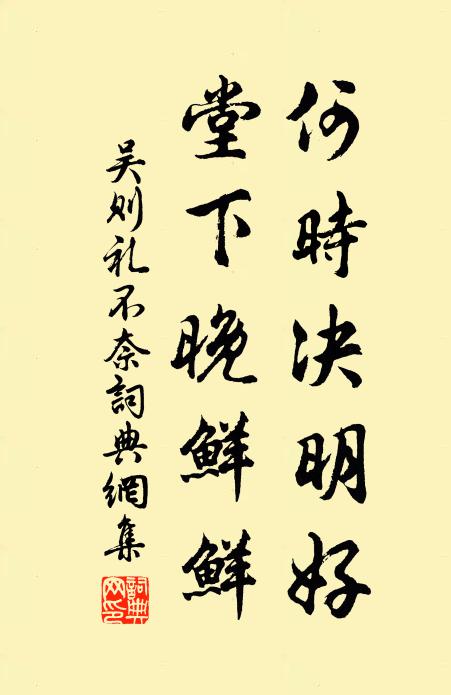 何時決明好
堂下晚鮮鮮
吴则礼不奈詞典網集
詞典網印